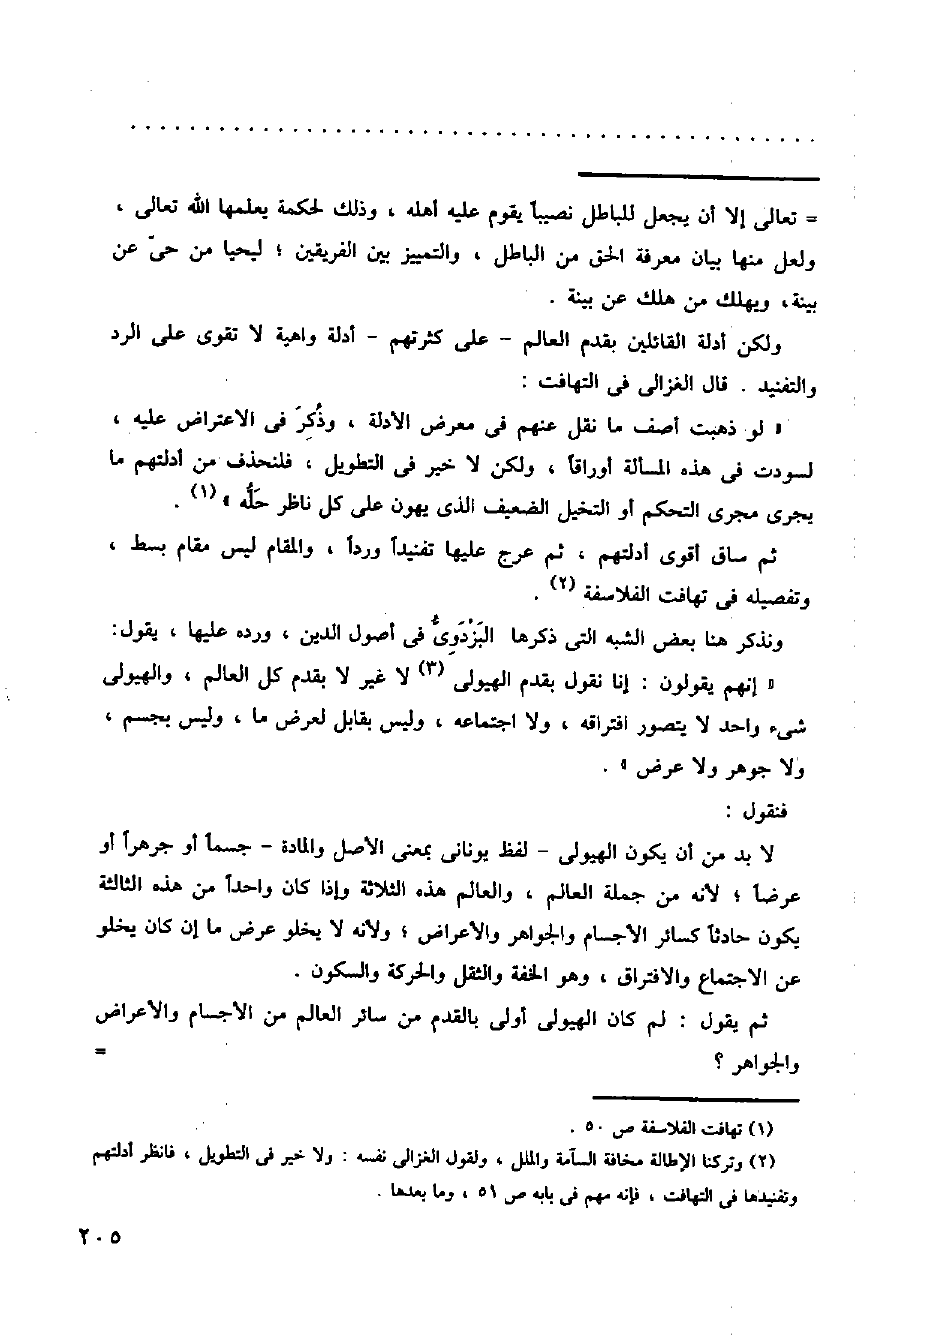 = تعالى إلا أن يجعل للباطل نصيباً يقوم عليه أهله ، وذلك لحكمة يعلمها الله تعالى ،
ولعل منها بيان معرفة الحق من الباطل ، والتمييز بين الفريقين ؛ ليحيا من حىّ عن
بينة، ويهلك من هلك عن بينة .
ولكن أدلة القائلين بقدم العالم - على كثرتهم - أدلة واهية لا تقوى على الرد
والتفنيد . قال الغزالى فى التهافت :
« لو ذهبت أصف ما نقل عنهم فى معرض الأدلة ، وذُكِرَ فى الاعتراض عليه ،
لسودت فى هذه المسألة أوراقاً ، ولكن لا خير فى التطويل ، فلنحذف من أدلتهم ما
يجرى مجرى التحكم أو التخيل الضعيف الذى يهون على كل ناظر حَلُّه » (١) .
ثم ساق أقوى أدلتهم ، ثم عرج عليها تفنيداً ورداً ، والمقام ليس مقام بسط ،
وتفصيله فى تهافت الفلاسفة (٢) .
ونذكر هنا بعض الشبه التى ذكرها البَزْدَوِىُّ فى أصول الدين ، ورده عليها ، يقول:
« إنهم يقولون : إنا نقول بقدم الهيولى (٣) لا غير لا بقدم كل العالم ، والهيولى
شىء واحد لا يتصور افتراقه ، ولا اجتماعه ، وليس بقابل لعرض ما ، وليس بجسم ،
ولا جوهر ولا عرض » .
فنقول :
لا بد من أن يكون الهيولى - لفظ يونانى بمعنى الأصل والمادة - جسماً أو جرهراً أو
عرضاً ؛ لأنه من جملة العالم ، والعالم هذه الثلاثة وإذا كان واحداً من هذه الثالثة
يكون حادثاً كسائر الأجسام والجواهر والأعراض ؛ ولأنه لا يخلو عرض ما إن كان يخلو
عن الاجتماع والافتراق ، وهو الخفة والثقل والحركة والسكون .
ثم يقول : لم كان الهيولى أولى بالقدم من سائر العالم من الأجسام والأعراض
والجواهر ؟ =
(١) تهافت الفلاسفة ص ٥٠ .
(٢) وتركنا الإطالة مخافة السآمة والملل ، ولقول الغزالى نفسه : ولا خير فى التطويل ، فانظر أدلتهم
وتفنيدها فى التهافت ، فإنه مهم فى بابه ص ٥١ ، وما بعدها .
٢٠٥